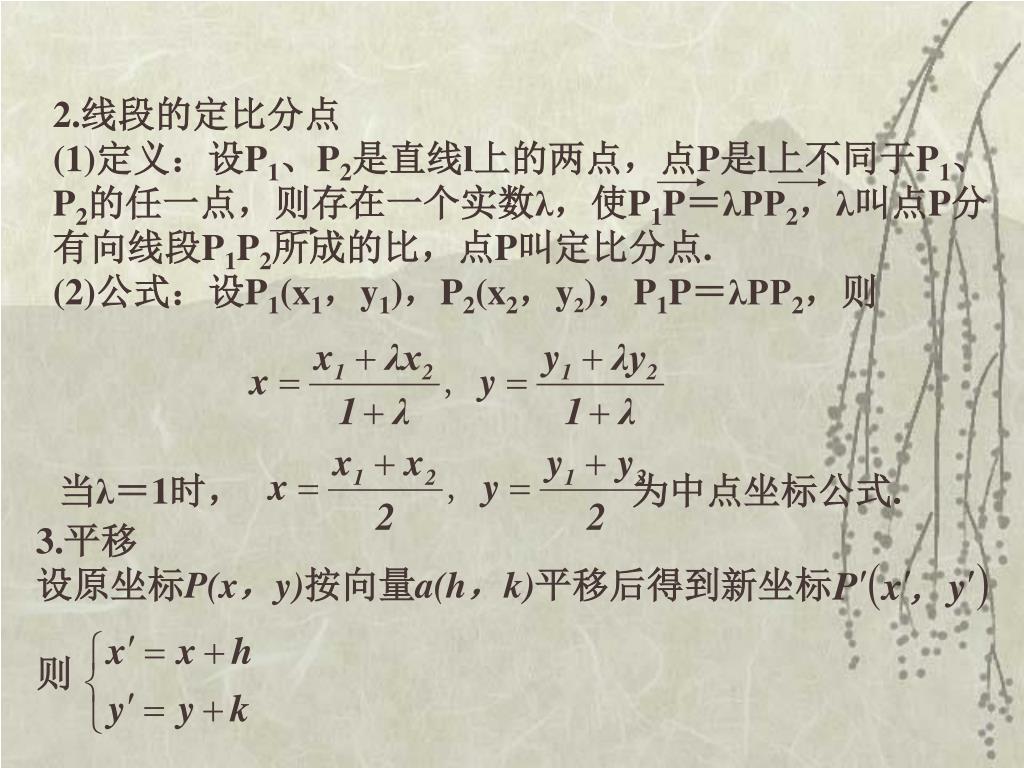 2.线段的定比分点
(1)定义：设P₁、P₂是直线l上的两点，点P是l上不同于P₁、
P₂的任一点，则存在一个实数λ，使P₁P＝λPP₂，λ叫点P分
有向线段P₁P₂所成的比，点P叫定比分点.
(2)公式：设P₁(x₁，y₁)，P₂(x₂，y₂)，P₁P＝λPP₂，则
x = (x₁ + λx₂)/(1 + λ), y = (y₁ + λy₂)/(1 + λ)
当λ＝1时， x = (x₁ + x₂)/2, y = (y₁ + y₂)/2 为中点坐标公式.
3.平移
设原坐标P(x，y)按向量a(h，k)平移后得到新坐标P′(x′，y′)
则 { x′ = x + h
y′ = y + k